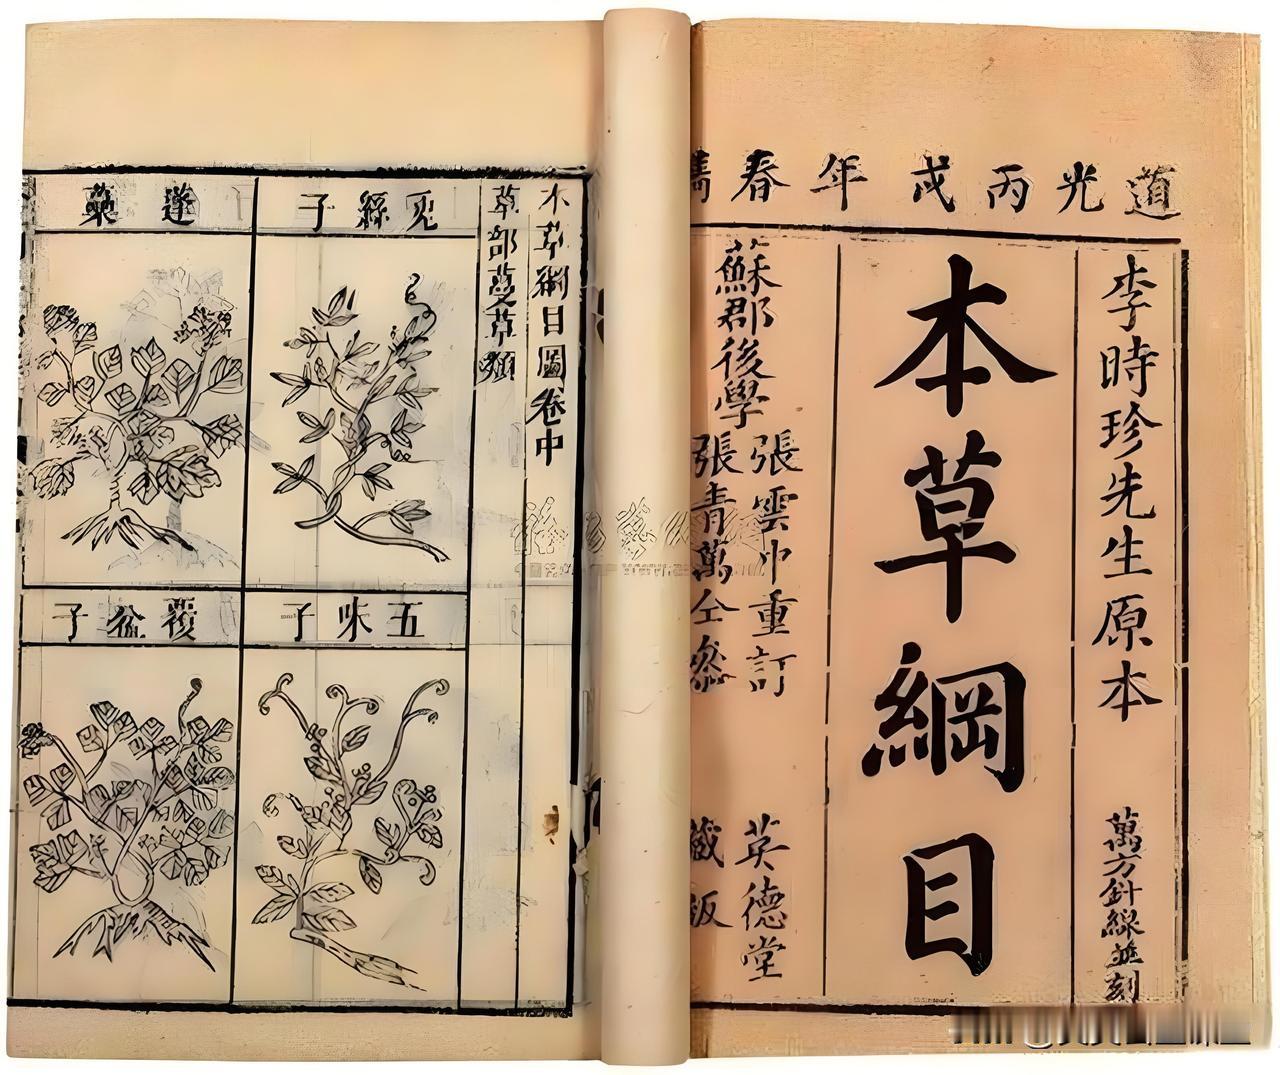 道光丙戌年春鐫
李時珍先生原本
萬方針線並刻
本草綱目
蘇郡後學
張雲中重訂
張青萬仝參
英德堂
藏版
本草綱目圖卷中
草部蔓草類
兎絲子
蓬虆
五味子
覆盆子